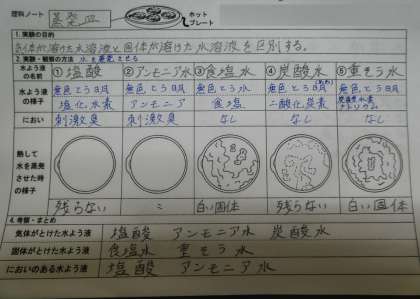 理科ノート 蒸発皿 ホットプレート
1. 実験の目的
気体が溶けた水溶液と固体が溶けた水溶液を区別する。
2. 実験・観察の方法 水を蒸発させる
水よう液の名前 ①塩酸 ②アンモニア水 ③食塩水 ④炭酸水 ⑤重そう水
水よう液の様子 無色とう明 無色とう明 無色とう明 無色とう明 無色とう明
塩化水素 アンモニア 食塩 二酸化炭素 炭酸水素ナトリウム
におい 刺激臭 刺激臭 なし なし なし
熱して水を蒸発させた時の様子
残らない 〃 白い固体 残らない 白い固体
4. 考察・まとめ
気体がとけた水よう液 塩酸 アンモニア水 炭酸水
固体がとけた水よう液 食塩水 重そう水
においのある水よう液 塩酸 アンモニア水